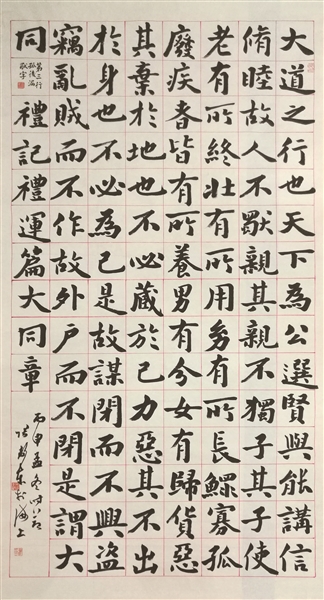 大道之行也天下為公選賢與能講信
脩睦故人不獨親其親不獨子其子使
老有所終壯有所用幼有所長鰥寡孤
廢疾者皆有所養男有分女有歸貨惡
其棄於地也不必藏於己力惡其不出
於身也不必為己是故謀閉而不興盜
竊亂賊而不作故外戶而不閉是謂大
同
第三行
孤後漏
字
禮記禮運篇大同章
丙申孟冬時節
於海上